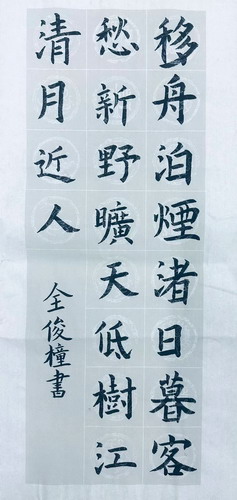 移舟泊煙渚日暮客
愁新野曠天低樹江
清月近人
全俊橦書